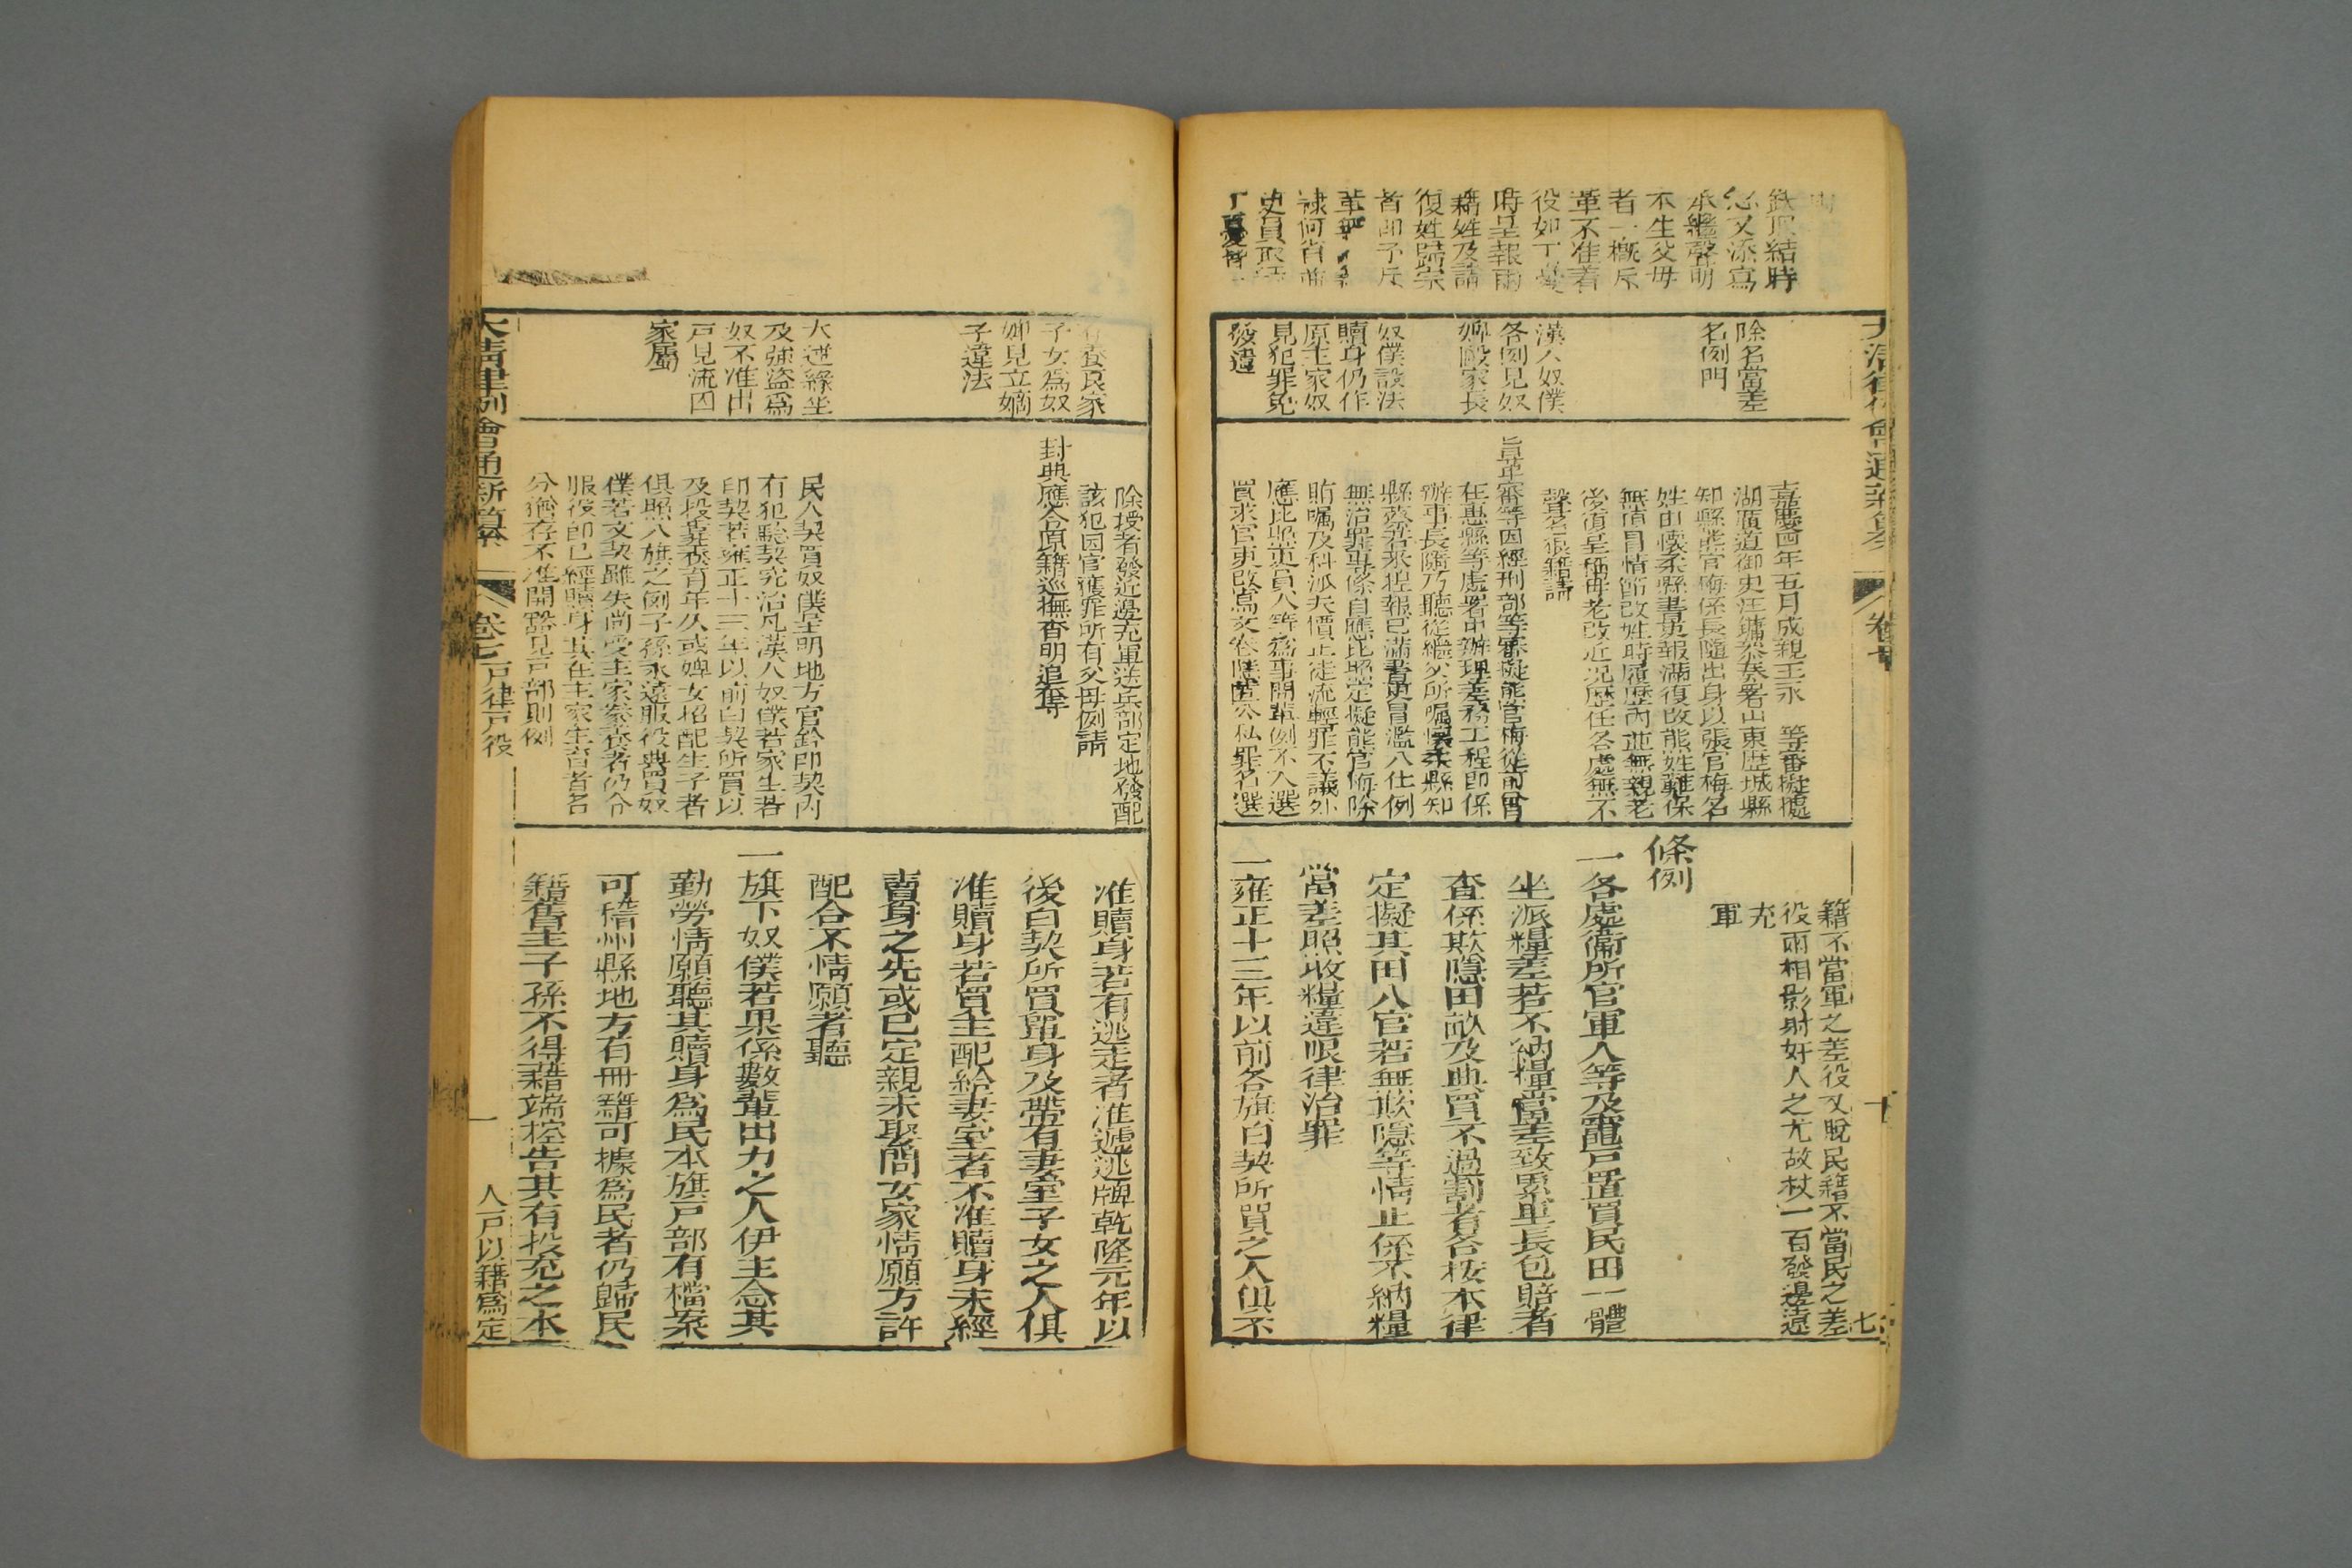 欽取結時
忿又添寫
承繼聲明
不生父母
者一槪斥
革不准着
役如丁憂
時呈報雨
籍姓及請
復姓歸宗
者卽予斥
隷何省龍
吏員取
丁憂
除名當差
名例門
漢人奴僕
各例見奴
婢毆家長
奴僕設法
贖身仍作
原主家奴
見犯罪免
發遣
嘉慶四年五月成親王永　等審擬
湖廣道御史汪鏞叅奏署山東歷城縣
知縣熊官梅係長隨出身以張官梅名
姓由懷柔縣書吏報滿復改熊姓雖保
無頂冒情節改姓時履歷內並無親老
後復呈稱毋老改近况歷任各處無不
聲名狼籍請
旨革審等因經刑部等審擬熊官梅從前曾
在惠縣等處署中辦理差務工程卽係
辦事長隨乃聽從繼父所囑懷柔縣知
縣張若來捏報已滿書吏冒濫入仕例
無治罪專條自應比照定擬熊官梅除
賄囑及科派夫價止徒流輕罪不議外
應比照吏員人等爲事問革例不入選
買求官吏改寫文卷隱匿公私罪名選
籍不當軍之差役又脫民籍不當民之差
役兩相影射奸人之尤故杖一百發邊遠
充
軍
條例
一各處衞所官軍人等及竈戸置買民田一體
坐派糧差若不納糧當差致累里長包賠者
查係欺隱田畝及典買不過割者各按本律
定擬其田入官若無欺隱等情止係不納糧
當差照收糧違限律治罪
一雍正十三年以前各旗白契所買之人俱不
大清律例會通新纂
十
七
存養良家
子女爲奴
婢見立嫡
子違法
大逆緣坐
及強盜爲
奴不准出
戸見流囚
家屬
除授者發近邊充軍送兵部定地發配
該犯因官獲罪所有父母例請
封典應令原籍巡撫查明追奪
民人契買奴僕呈明地方官鈐印契內
有犯驗契究治凡漢人奴僕若家生若
印契若雍正十三年以前白契所買以
及投靠養育年久或婢女招配生子者
俱照八旗之例子孫永遠服役典買奴
僕若文契雖失尚受主家豢養者仍令
服役卽已經贖身其在主家生育者名
分猶存不准開豁見戸部則例
准贖身若有逃走者准遞逃牌乾隆元年以
後白契所買單身及帶有妻室子女之人俱
准贖身若買主配給妻室者不准贖身未經
賣身之先或已定親未娶問女家情願方許
配合不情願者聽
一旗下奴僕若果係數輩出力之人伊主念其
勤勞情願聽其贖身爲民本旗戸部有檔案
可稽州縣地方有冊籍可據爲民者仍歸民
籍舊主子孫不得藉端控告其有投充之本
大清律例會通新纂
卷七戸律戸役
一
人戸以籍爲定